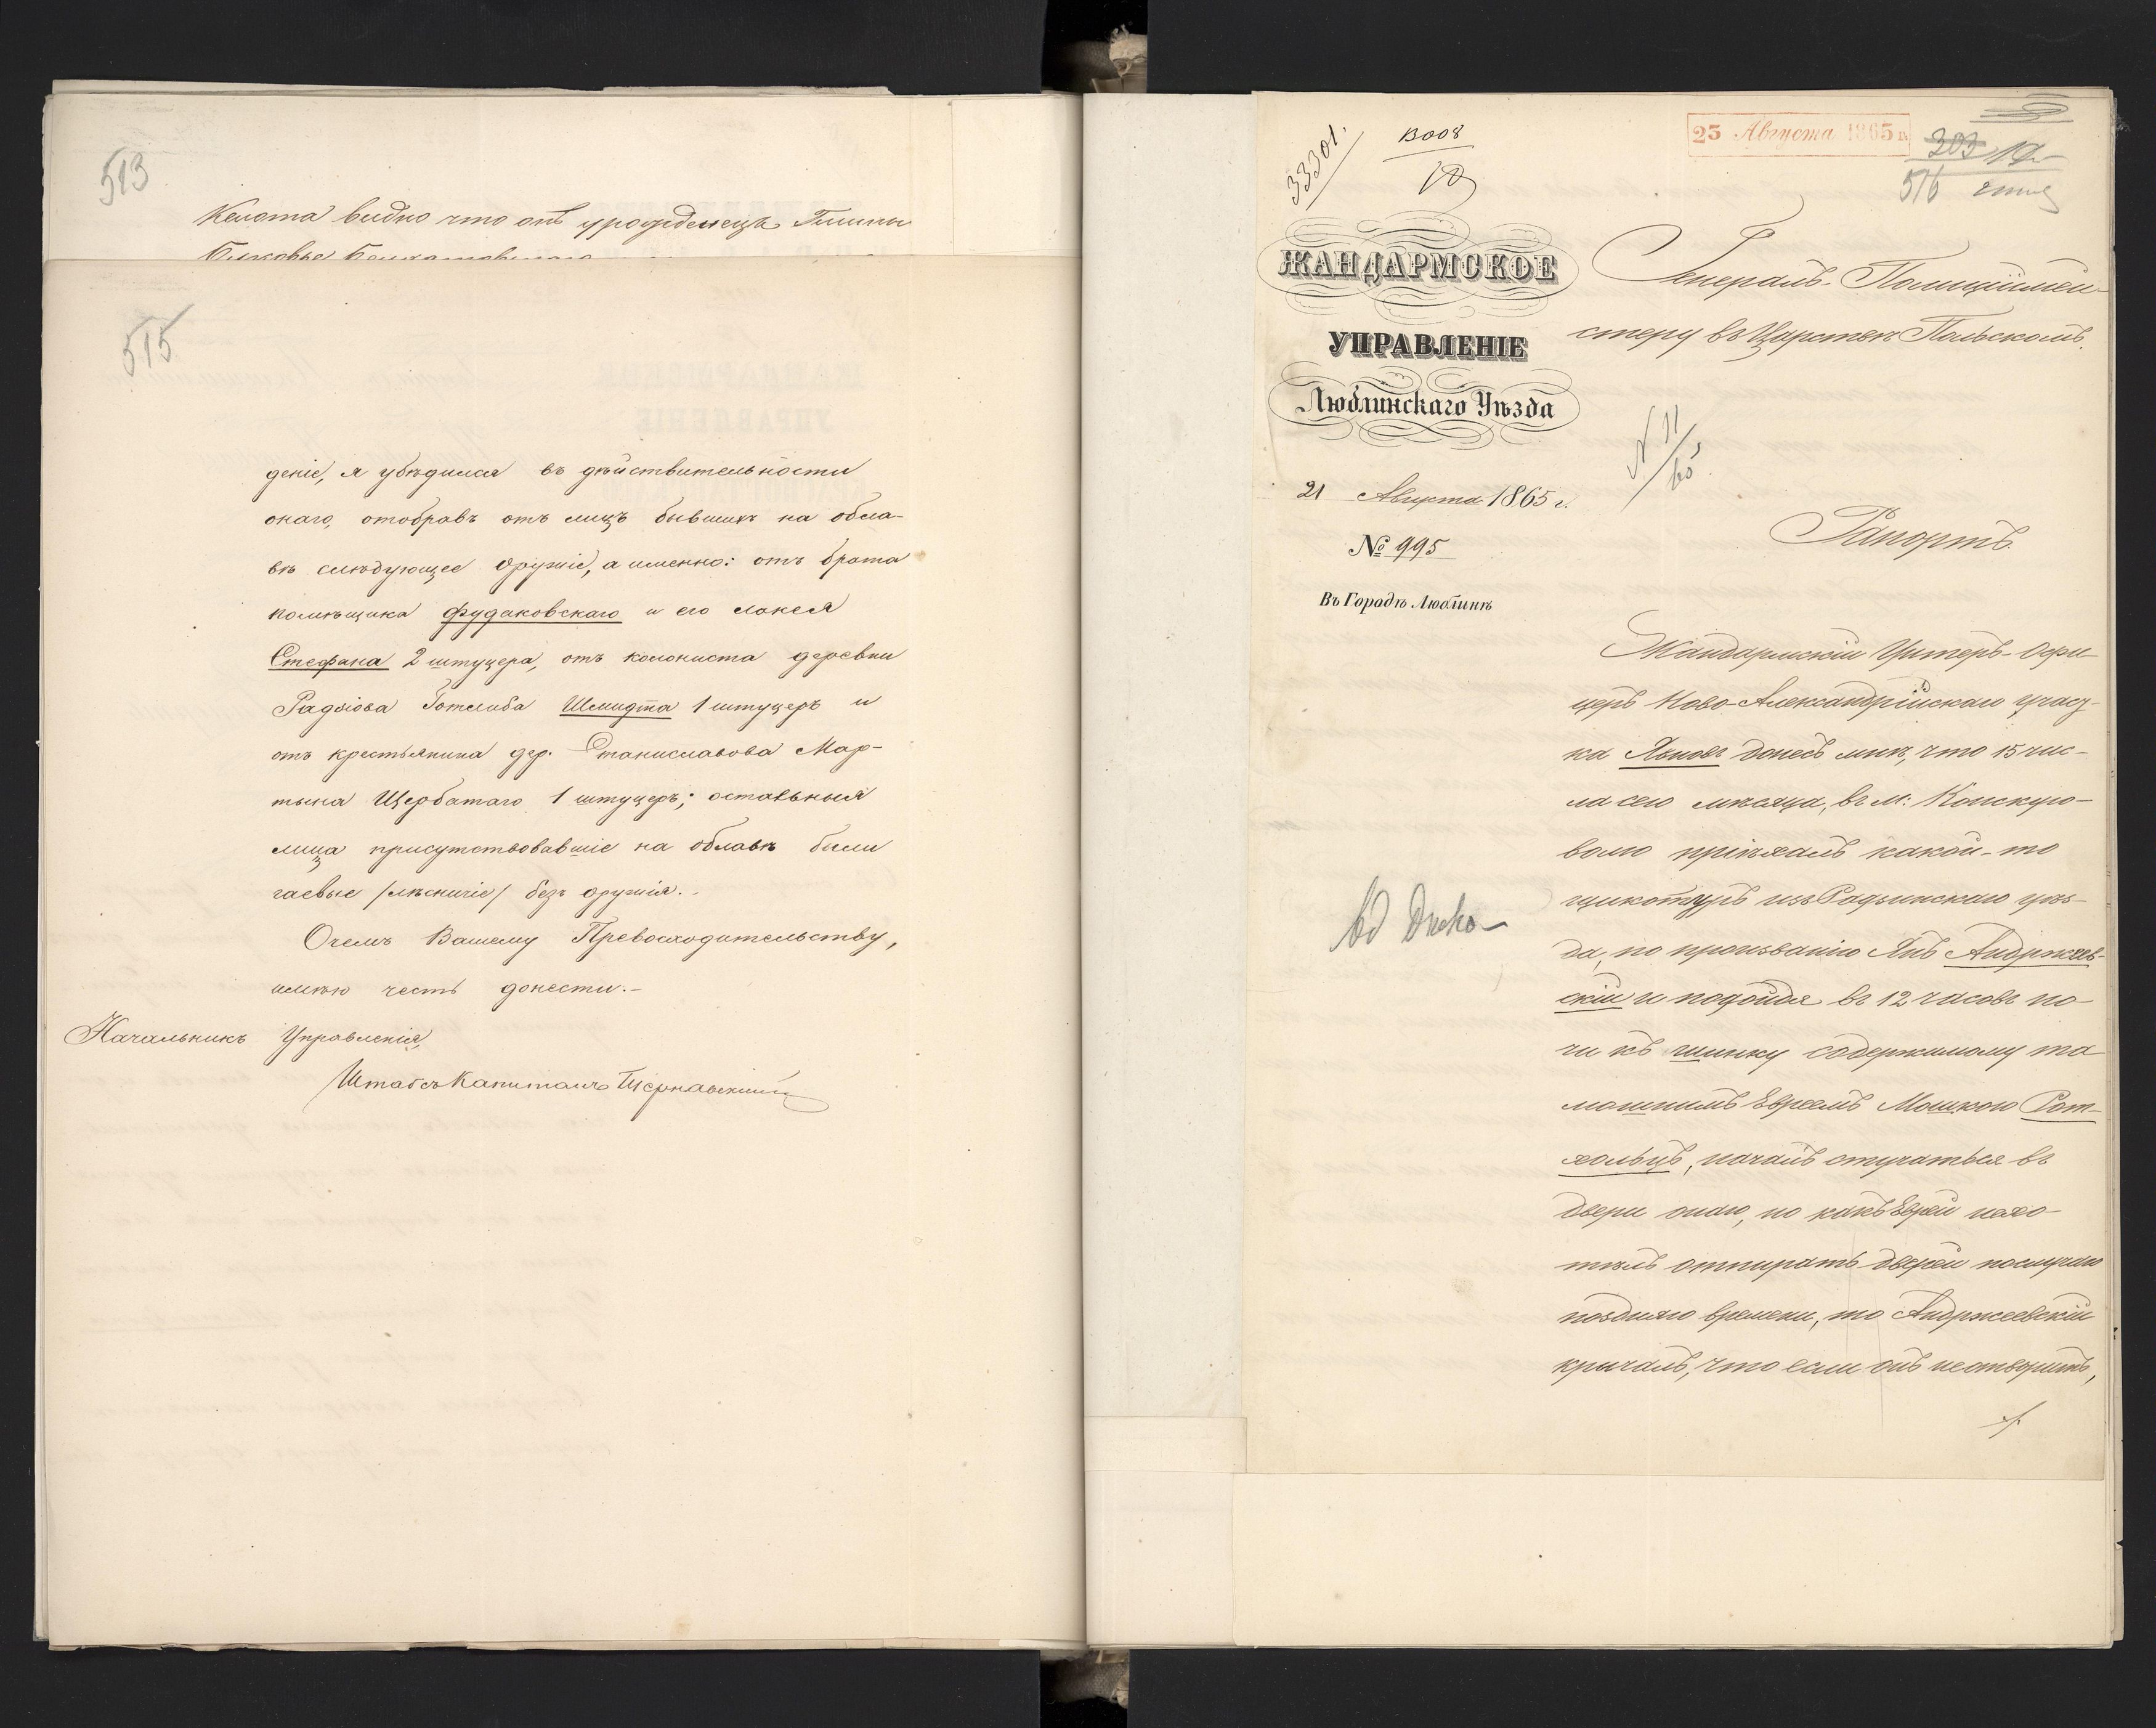 513
видно что онъ уроженецъ Гмины
515
деніе, я убѣдился въ дѣйствительности
онаго, отобравъ отъ лицъ бывшихъ на обла-
вѣ слѣдующее оружіе, а именно: отъ брата
помѣщика Фудаковскаго и его лакея
Стефана 2 штуцера, отъ колониста деревни
Готлиба Шмидта 1 штуцеръ и
отъ крестьянина дер. Станиславова Мар-
тына Щербатаго 1 штуцеръ; остальныя
лица присутствовавшіе на облавѣ были
гаевые /лѣсничіе/ безъ оружія.
О чемъ Вашему Превосходительству,
имѣю честь донести.-
Начальникъ Управленія,
Штабсъ Капитанъ
33301.
25 Августа 1865 г.
303
516
ЖАНДАРМСКОЕ
УПРАВЛЕНІЕ
Люблинскаго Уѣзда
Генералъ-Полиціймей-
стеру въ Царствѣ Польскомъ.
N 11/65
21 Августа 1865 г.
№ 995
Въ Городѣ Люблинѣ
Рапортъ.
Жандармскій Унтеръ-Офи-
церъ Ново-Александрійскаго участ-
ка донесъ мнѣ, что 15 чис-
ла сего мѣсяца, въ м: Конскую-
волю пріѣхалъ какой-то
изъ Радзынскаго уѣз-
да, по прозванію Янъ Андржеев-
скій и подойдя въ 12 часовъ но-
чи къ шинку содержимому та-
мошнимъ Евреемъ Мошкою Рот-
хольцъ, началъ стучаться въ
двери онаго, но какъ Еврей нехо-
тѣлъ отпирать дверей послучаю
поздняго времени, то Андржеевскій
кричалъ, что если онъ неотворитъ,